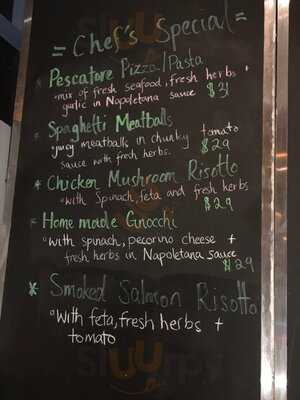 = Chef's Special =
* Pescatore Pizza/Pasta
"mix of fresh seafood, fresh herbs +
garlic in Napoletana sauce $31
* Spaghetti Meatballs
"juicy meatballs in chunky tomato
sauce with fresh herbs. $29
* Chicken Mushroom Risotto
"with Spinach, feta and fresh herbs
$29
* Home made Gnocchi
"with spinach, pecorino cheese +
fresh herbs in Napoletana sauce
$29
* Smoked Salmon Risotto
"with feta, fresh herbs +
tomato
sluurpy